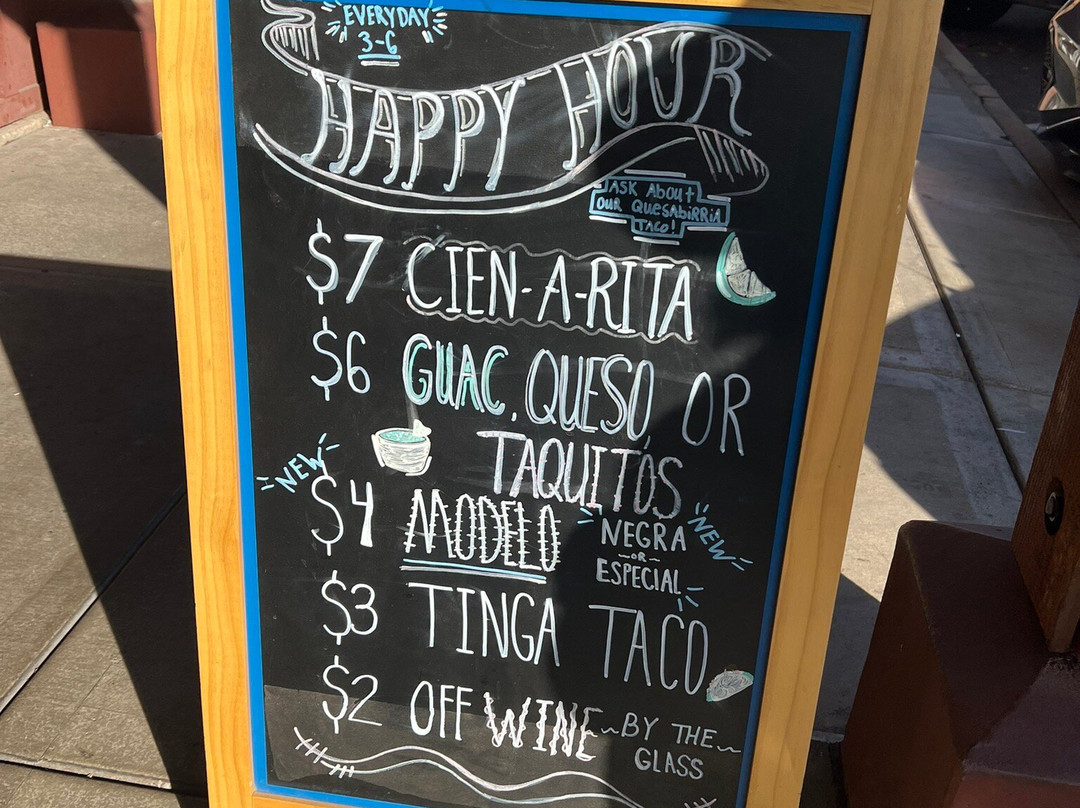 EVERYDAY
3-6
HAPPY HOUR
ASK About
OUR QUESABIRRIA
TACO!
$7 CIEN-A-RITA
$6 GUAC, QUESO, OR
TAQUITOS
NEW
$4 MODELO
NEGRA
-OR-
ESPECIAL
NEW
$3 TINGA TACO
$2 OFF WINE ~BY THE~
GLASS